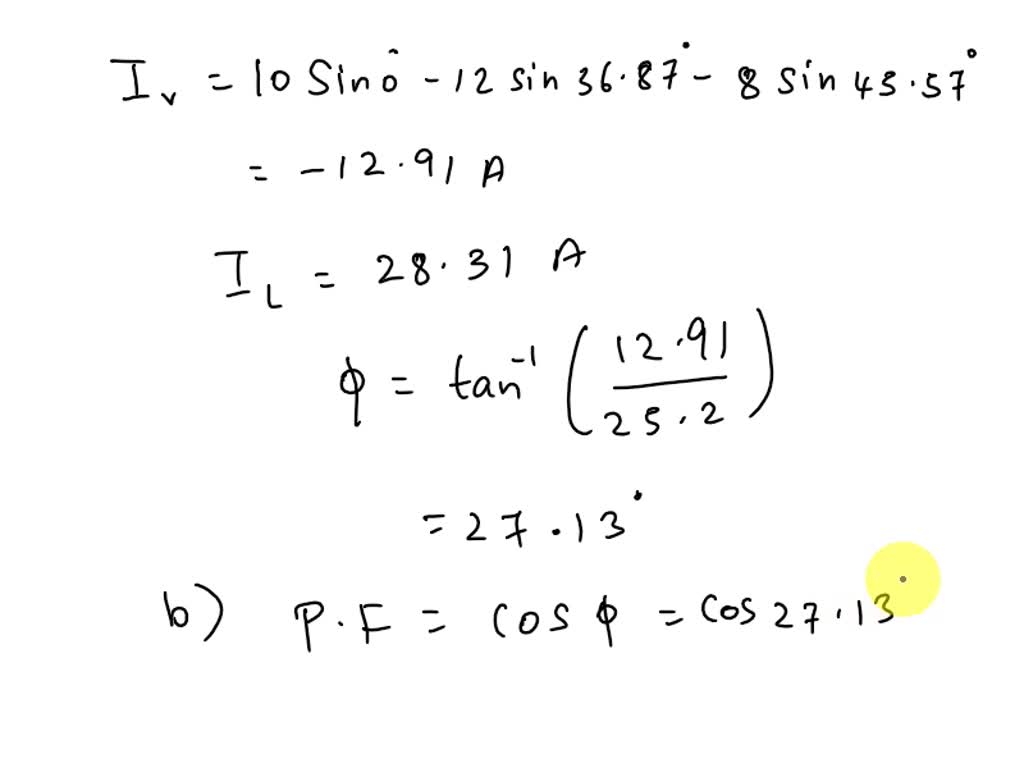 I_v = 10 Sin 0° - 12 sin 36.87° - 8 sin 45.57°
= -12.91 A
I_L = 28.31 A
φ = tan⁻¹ (12.91 / 25.2)
= 27.13°
b) P.F = cos φ = cos 27.13